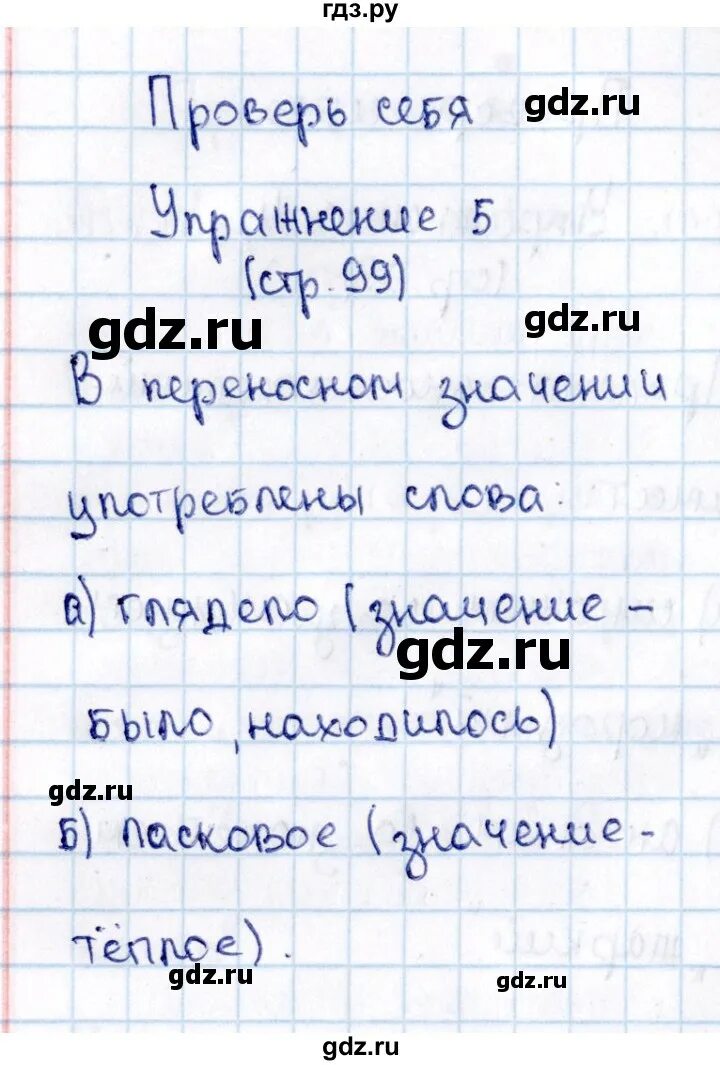 гдз.ру
Проверь себя gdz.ru
Упражнение 5
(стр. 99)
gdz.ru gdz.ru
В переносном значении
употреблены слова:
а) глядело (значение -
gdz.ru
было, находилось)
gdz.ru
б) ласковое (значение -
тёплое).
gdz.ru gdz.ru
gdz.ru